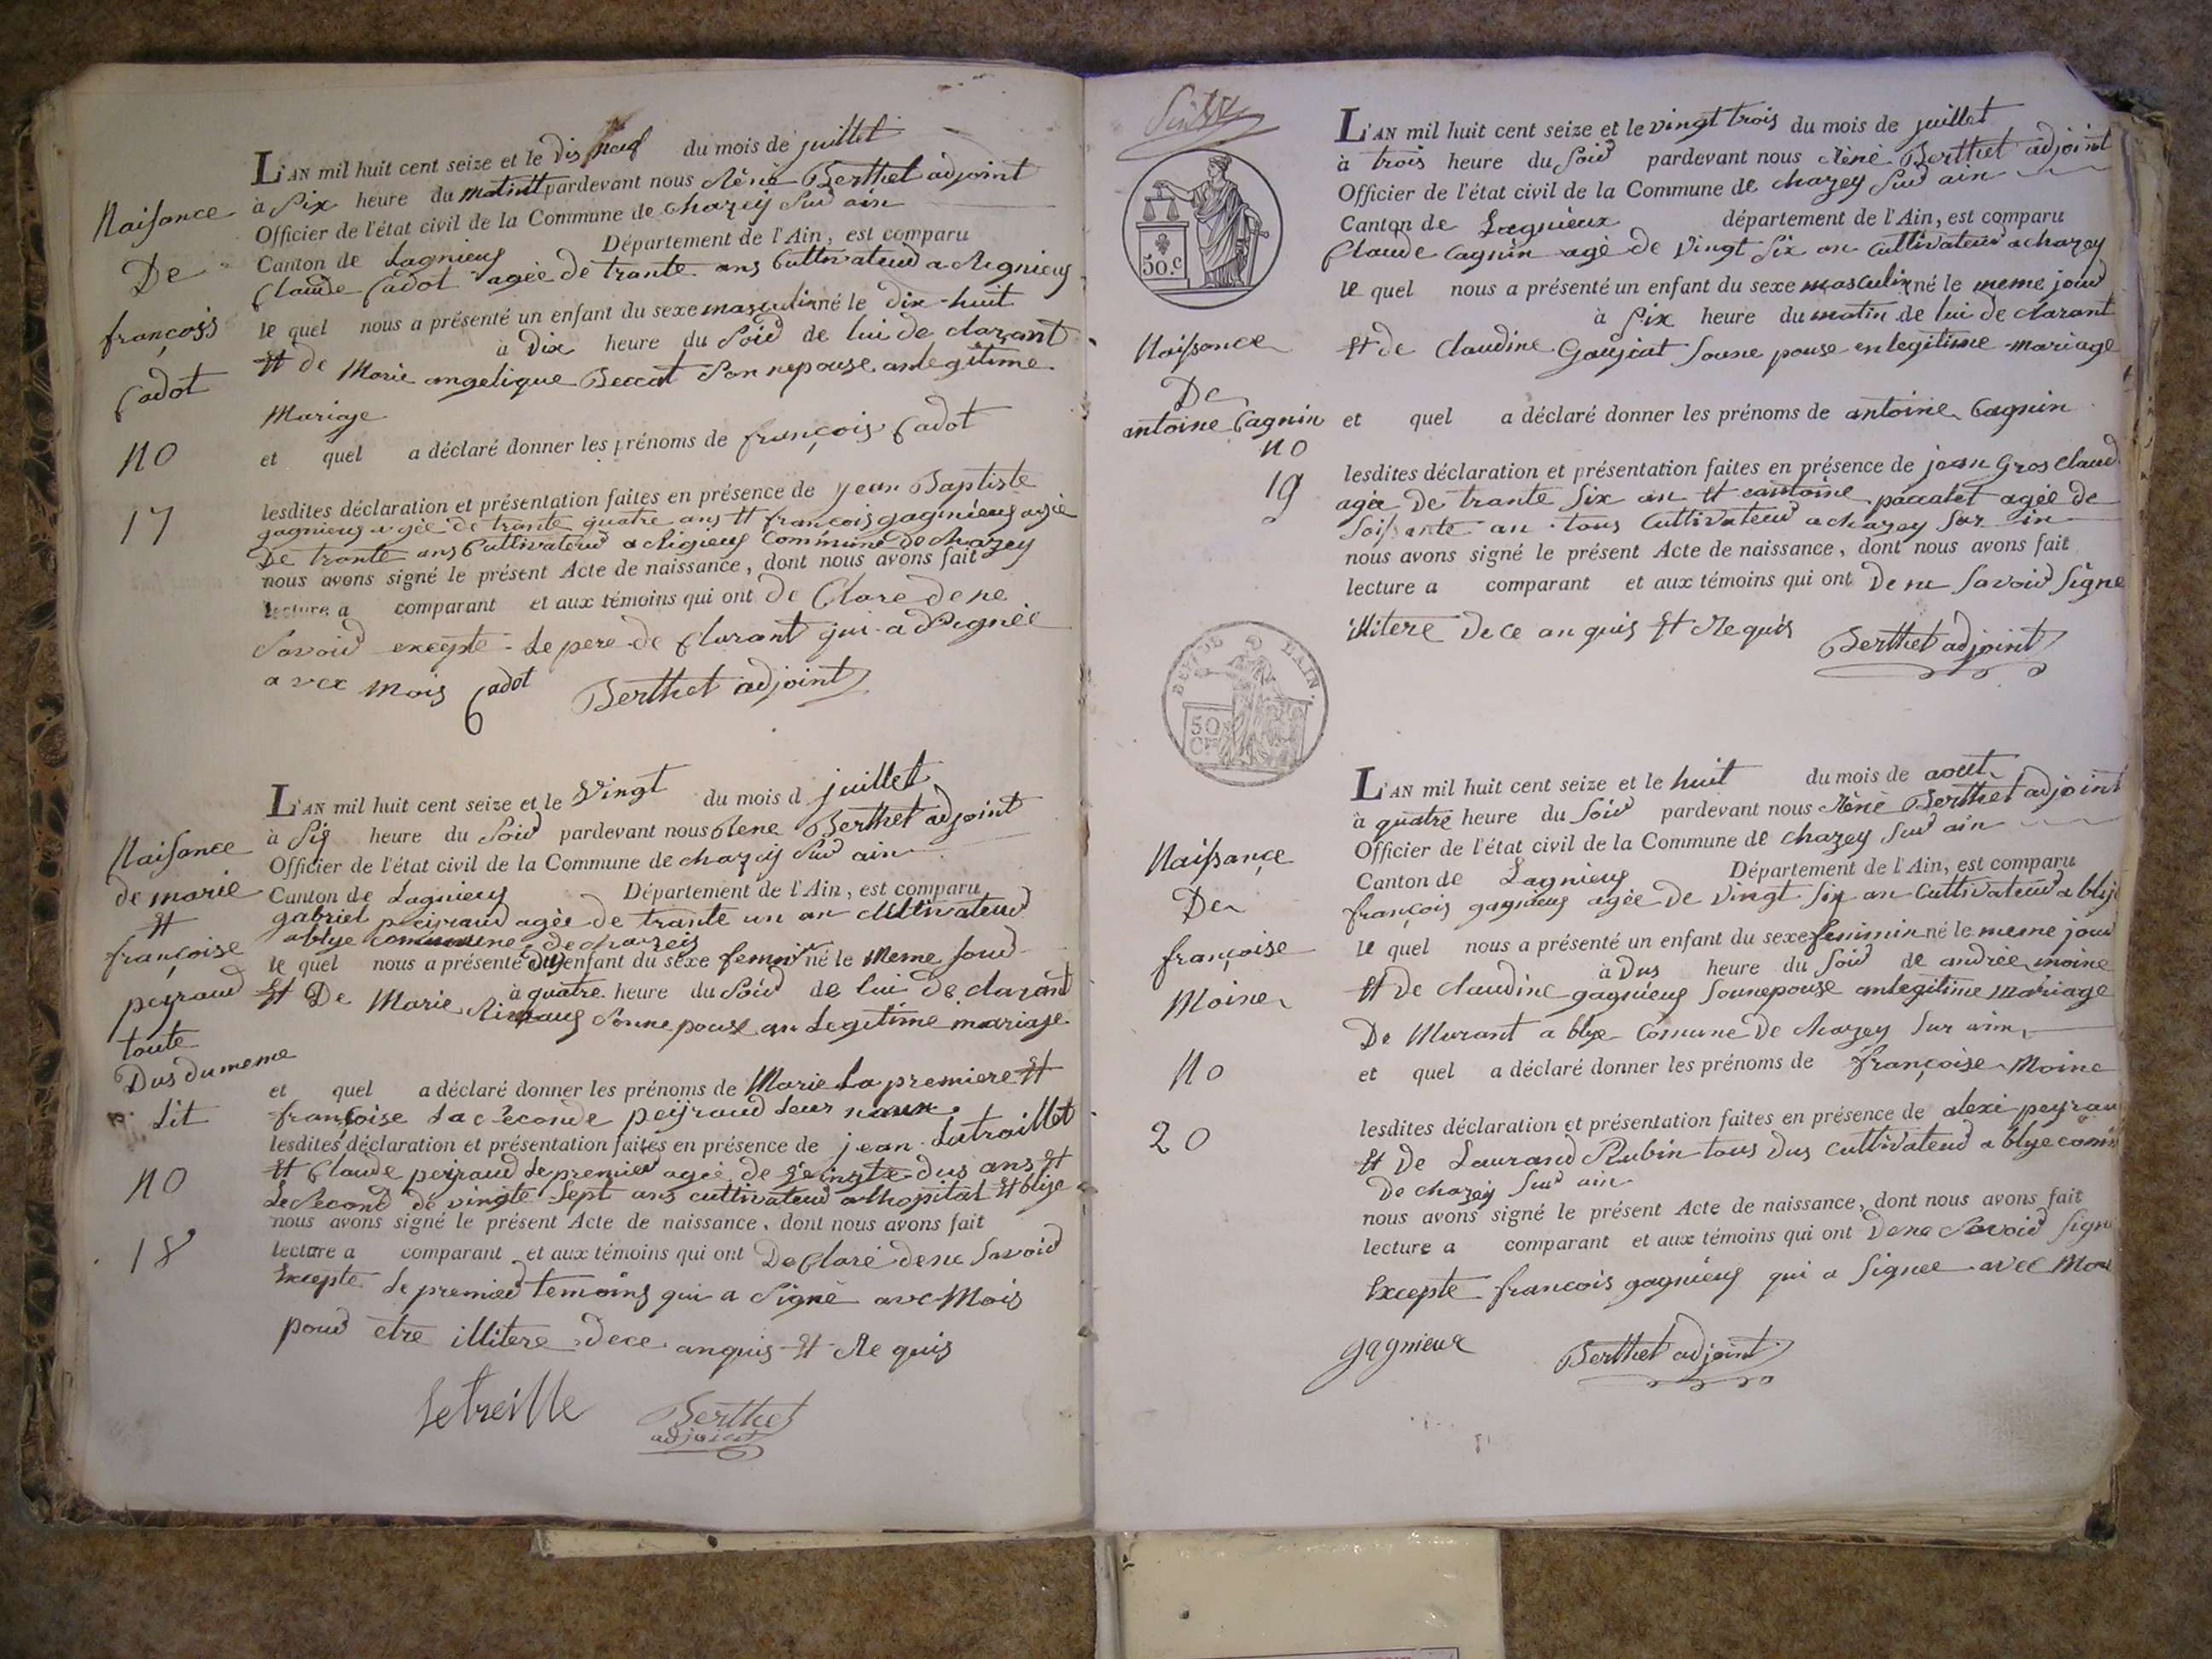 Naisance
De
françois
Cadot
no
17
L'AN mil huit cent seize et le dis neuf du mois de juillet
à Six heure du matint pardevant nous Réné Berthet adjoint
Officier de l'état civil de la Commune de chazey Sur ain
Canton de Lagnieux Département de l'Ain, est comparu
Claude Cadot agée de trante ans Cultivateur a Rignieux
le quel nous a présenté un enfant du sexe masculin né le dix-huit
à Dix heure du Soir de lui de clarant
Et de Marie angelique Beccat Son nepouse anlegitime
Mariage
et quel a déclaré donner les prénoms de françois Cadot
lesdites déclaration et présentation faites en présence de jean Baptiste
gagnieux agée de trante quatre ans Et francois gagnieux agée
De trante ans Cultivateur a Rigieux Commune De chazey
nous avons signé le présent Acte de naissance, dont nous avons fait
lecture a comparant et aux témoins qui ont de Clare de ne
Savoir excepte Le pere de Clarant qui a Signée
avex mois Cadot Berthet adjoint
Naisance
de marie
Et
françoise
peyraud
toute
Dus du meme
Lit
no
18
L'AN mil huit cent seize et le Vingt du mois d juillet
à Six heure du Soir pardevant nous Rene Berthet adjoint
Officier de l'état civil de la Commune de chazey Sur ain
Canton de Lagnieux Département de l'Ain, est comparu
gabriel peyraud agée de trante un an Cultivateur
a blye commune de chazeis
le quel nous a présenté dus enfant du sexe feminin né le Meme Jour
à quatre heure du Soir de lui de clarant
Et De Marie Sonne pouse an Legitime mariage
et quel a déclaré donner les prénoms de Marie La premiere Et
françoise La ceconde peyraud Leur
lesdites déclaration et présentation faites en présence de jean Latraillet
Et Claude peyraud Le premier agée de dus ans Et
Le Second de vingte Sept ans cultivateur a lhopital Et blye
nous avons signé le présent Acte de naissance, dont nous avons fait
lecture a comparant et aux témoins qui ont De Claré de ne Savoir
Excepte Le premier temoins qui a Signé avec Mois
pour etre illitere dece anquis Et Re quis
Letreille Berthet
adjoint
50.c
Naissance
De
antoine Cagnin
no
19
L'AN mil huit cent seize et le vingt trois du mois de juillet
à trois heure du Soir pardevant nous Réné Berthet adjoint
Officier de l'état civil de la Commune de chazey Sur ain
Canton de Lagnieux département de l'Ain, est comparu
Claude Cagnin agé de Vingt Six an Cultivateur a chazey
le quel nous a présenté un enfant du sexe masculin né le meme jour
à Six heure du matin de lui de clarant
Et de Claudine Goujcat Soune pouse en legitime mariage
et quel a déclaré donner les prénoms de antoine Cagnin
lesdites déclaration et présentation faites en présence de jean Gros Claud
agée De trante Six an Et eantoine paccalet agée de
Soissante an tous Cultivateur a chazey Sur in
nous avons signé le présent Acte de naissance, dont nous avons fait
lecture a comparant et aux témoins qui ont De ne Savoir Signe
illitere De ce an quis Et Requis Berthet adjoint
DEPT DE L'AIN
50
Naissance
De
françoise
Moine
No
20
L'AN mil huit cent seize et le huit du mois de aout
à quatre heure du Soir pardevant nous Réné Berthet adjoint
Officier de l'état civil de la Commune de chazey Sur ain
Canton de Lagnieux Département de l'Ain, est comparu
françois gagnieux agée De Vingt Six an Cultivateur a blye
le quel nous a présenté un enfant du sexe feminin né le meme jour
à Dus heure du Soir de andrée moine
Et De claudine gagnieux Sounepouse anlegitime mariage
De Murant a blye Comune De chazey Sur ain
et quel a déclaré donner les prénoms de françoise Moine
lesdites déclaration et présentation faites en présence de alexi peyrau
Et De Laurand Rubin tous dus cultivateur a blye comu
De chazey Sur ain
nous avons signé le présent Acte de naissance, dont nous avons fait
lecture a comparant et aux témoins qui ont De ne Savoir Signe
Excepte francois gagnieux qui a Signee avec Moi
gagnieux Berthet adjoint